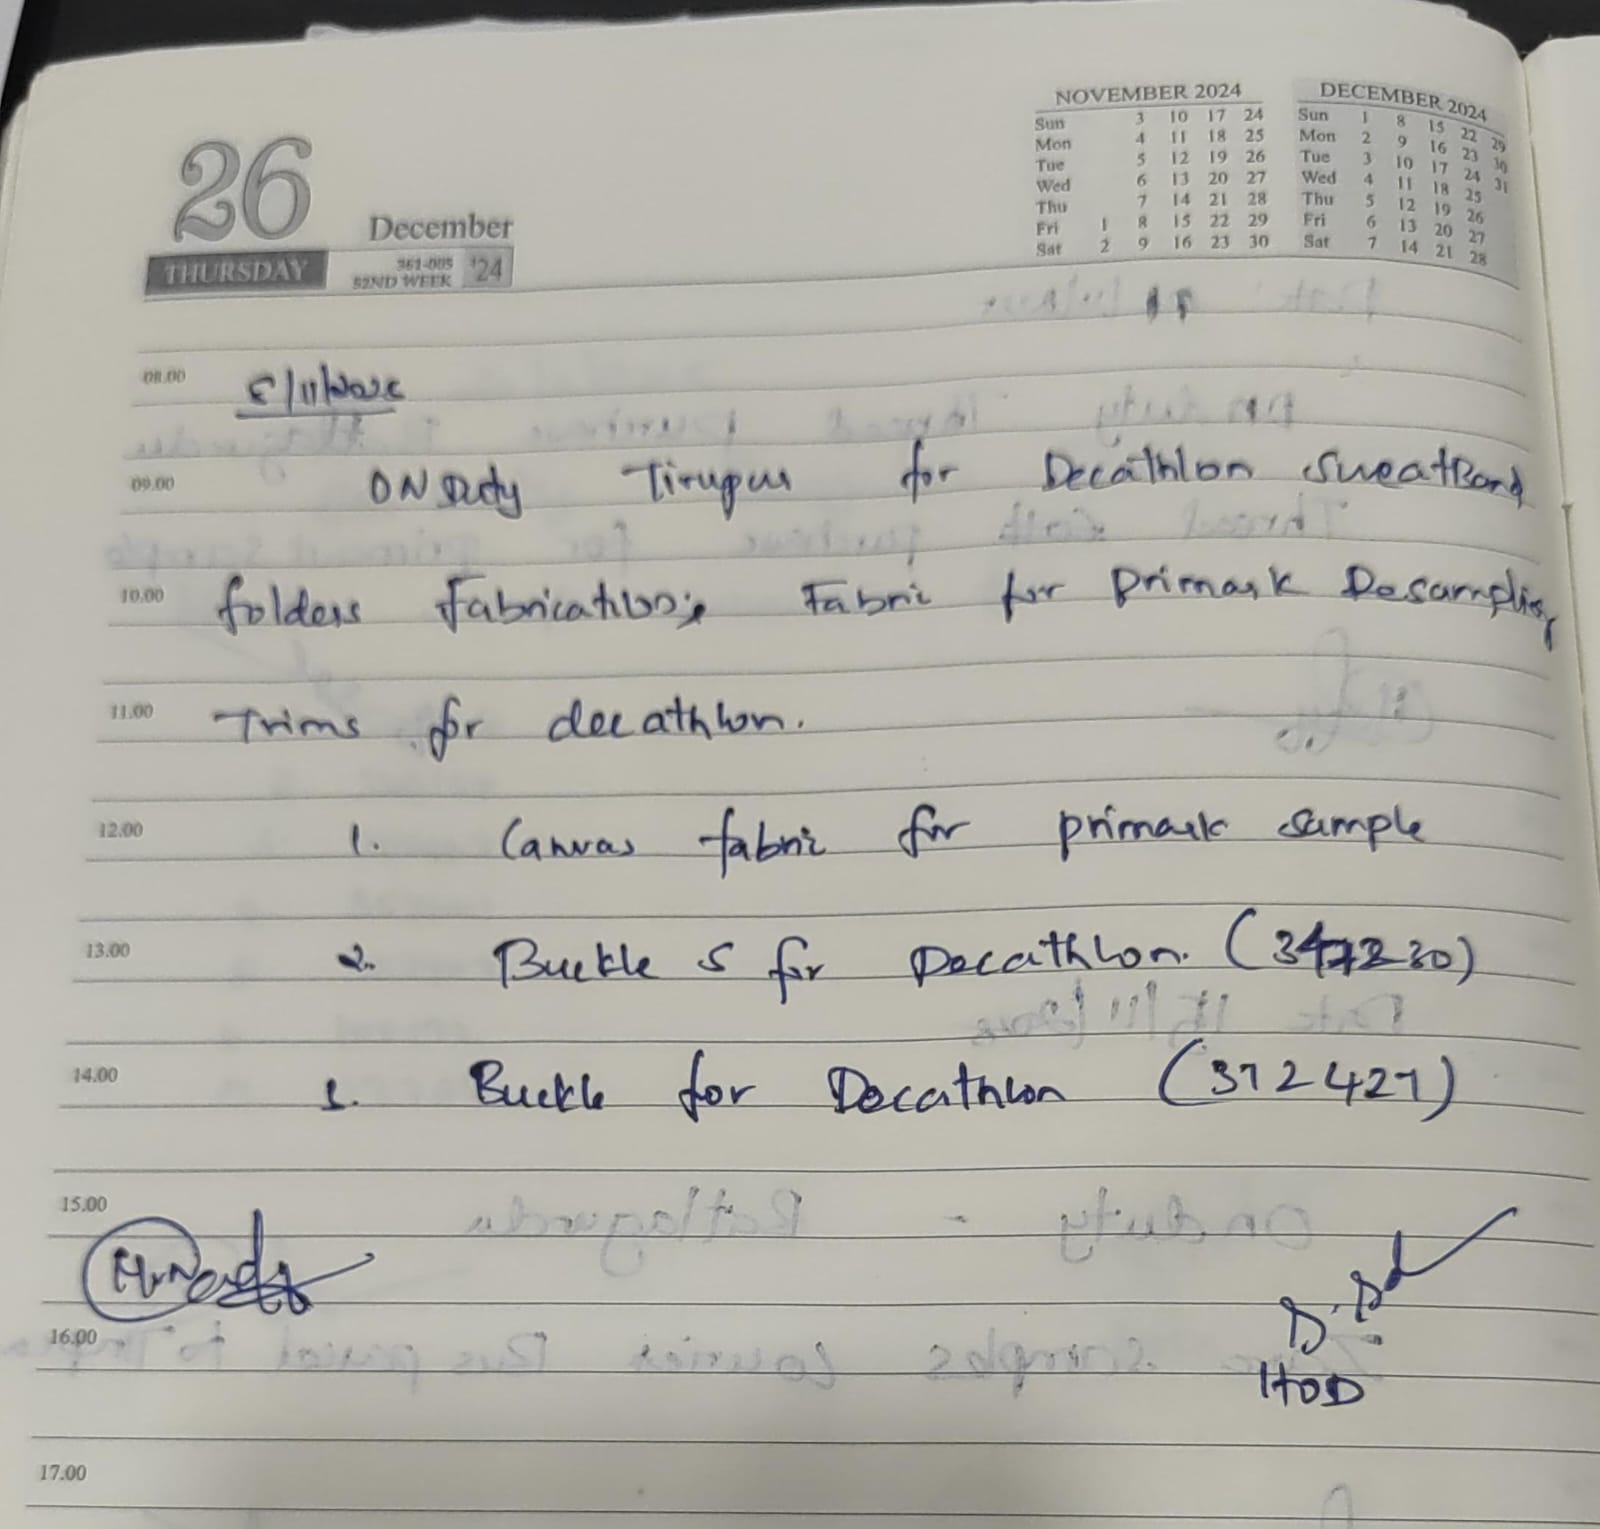 NOVEMBER 2024
Sun 3 10 17 24
Mon 4 11 18 25
Tue 5 12 19 26
Wed 6 13 20 27
Thu 7 14 21 28
Fri 1 8 15 22 29
Sat 2 9 16 23 30
DECEMBER 2024
Sun 1 8 15 22 29
Mon 2 9 16 23 30
Tue 3 10 17 24 31
Wed 4 11 18 25
Thu 5 12 19 26
Fri 6 13 20 27
Sat 7 14 21 28
26
December
THURSDAY
361-005
52ND WEEK '24
08.00
09.00 ON Duty Tirupur for Decathlon SweatBand
10.00 folders Fabrication; Fabric for Primark
11.00 Trims for decathlon.
12.00 1. Canvas fabric for primark sample
13.00 2. Buckle S for Decathlon.
14.00 3. Buckle for Decathlon (372427)
15.00
16.00
HOD
17.00